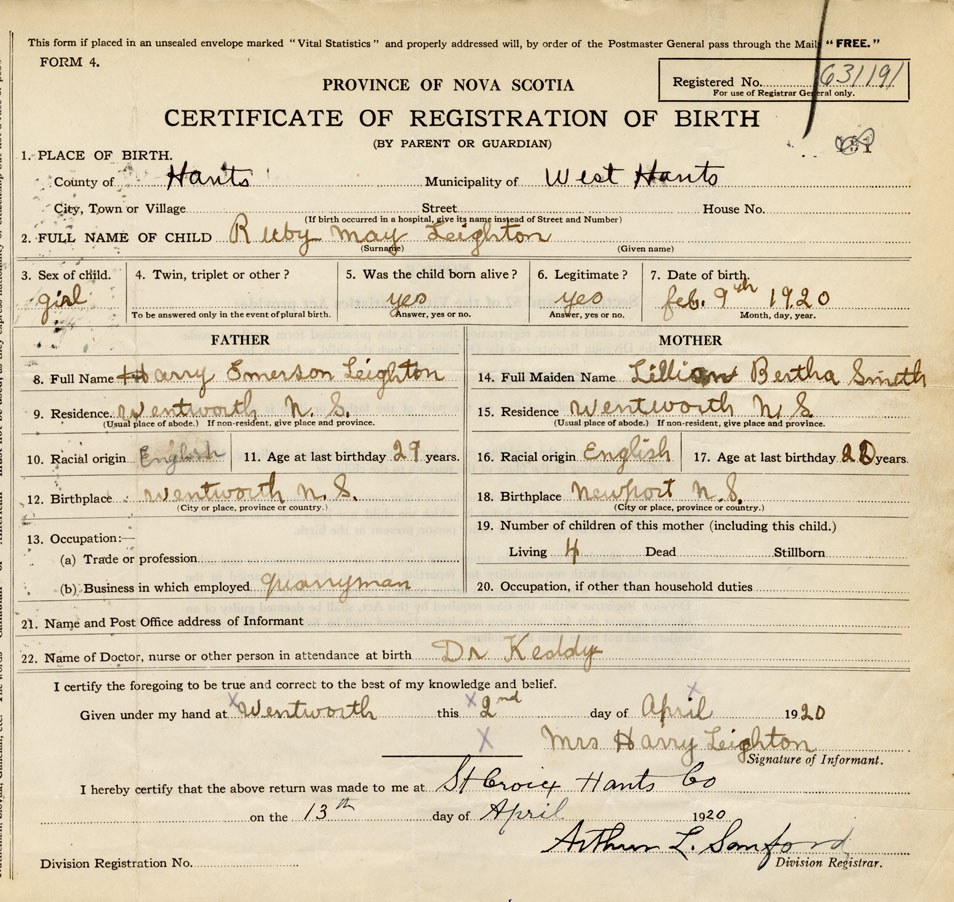 This form if placed in an unsealed envelope marked "Vital Statistics" and properly addressed will, by order of the Postmaster General pass through the Mail "FREE."
FORM 4.
Registered No. 631191
For use of Registrar General only.
PROVINCE OF NOVA SCOTIA
CERTIFICATE OF REGISTRATION OF BIRTH
(BY PARENT OR GUARDIAN)
1. PLACE OF BIRTH.
County of Hants Municipality of West Hants
City, Town or Village Street House No.
(If birth occurred in a hospital, give its name instead of Street and Number)
2. FULL NAME OF CHILD Ruby May Leighton
(Surname) (Given name)
3. Sex of child. 4. Twin, triplet or other? 5. Was the child born alive? 6. Legitimate? 7. Date of birth.
girl yes yes feb. 9th 1920
To be answered only in the event of plural birth. Answer, yes or no. Answer, yes or no. Month, day, year.
FATHER MOTHER
8. Full Name Harry Emerson Leighton 14. Full Maiden Name Lillian Bertha Smith
9. Residence. Wentworth N.S. 15. Residence Wentworth N.S.
(Usual place of abode.) If non-resident, give place and province. (Usual place of abode.) If non-resident, give place and province.
10. Racial origin English 11. Age at last birthday 29 years. 16. Racial origin English 17. Age at last birthday 28 years.
12. Birthplace Wentworth N.S. 18. Birthplace Newport N.S.
(City or place, province or country.) (City or place, province or country.)
13. Occupation:— 19. Number of children of this mother (including this child.)
(a) Trade or profession Living 4 Dead Stillborn
(b) Business in which employed quarryman 20. Occupation, if other than household duties
21. Name and Post Office address of Informant
22. Name of Doctor, nurse or other person in attendance at birth Dr Keddy
I certify the foregoing to be true and correct to the best of my knowledge and belief.
Given under my hand at X Wentworth this X 2nd day of X April 1920
X Mrs Harry Leighton
Signature of Informant.
I hereby certify that the above return was made to me at St Croix Hants Co
on the 13th day of April 1920
Arthur L. Sanford
Division Registration No. Division Registrar.